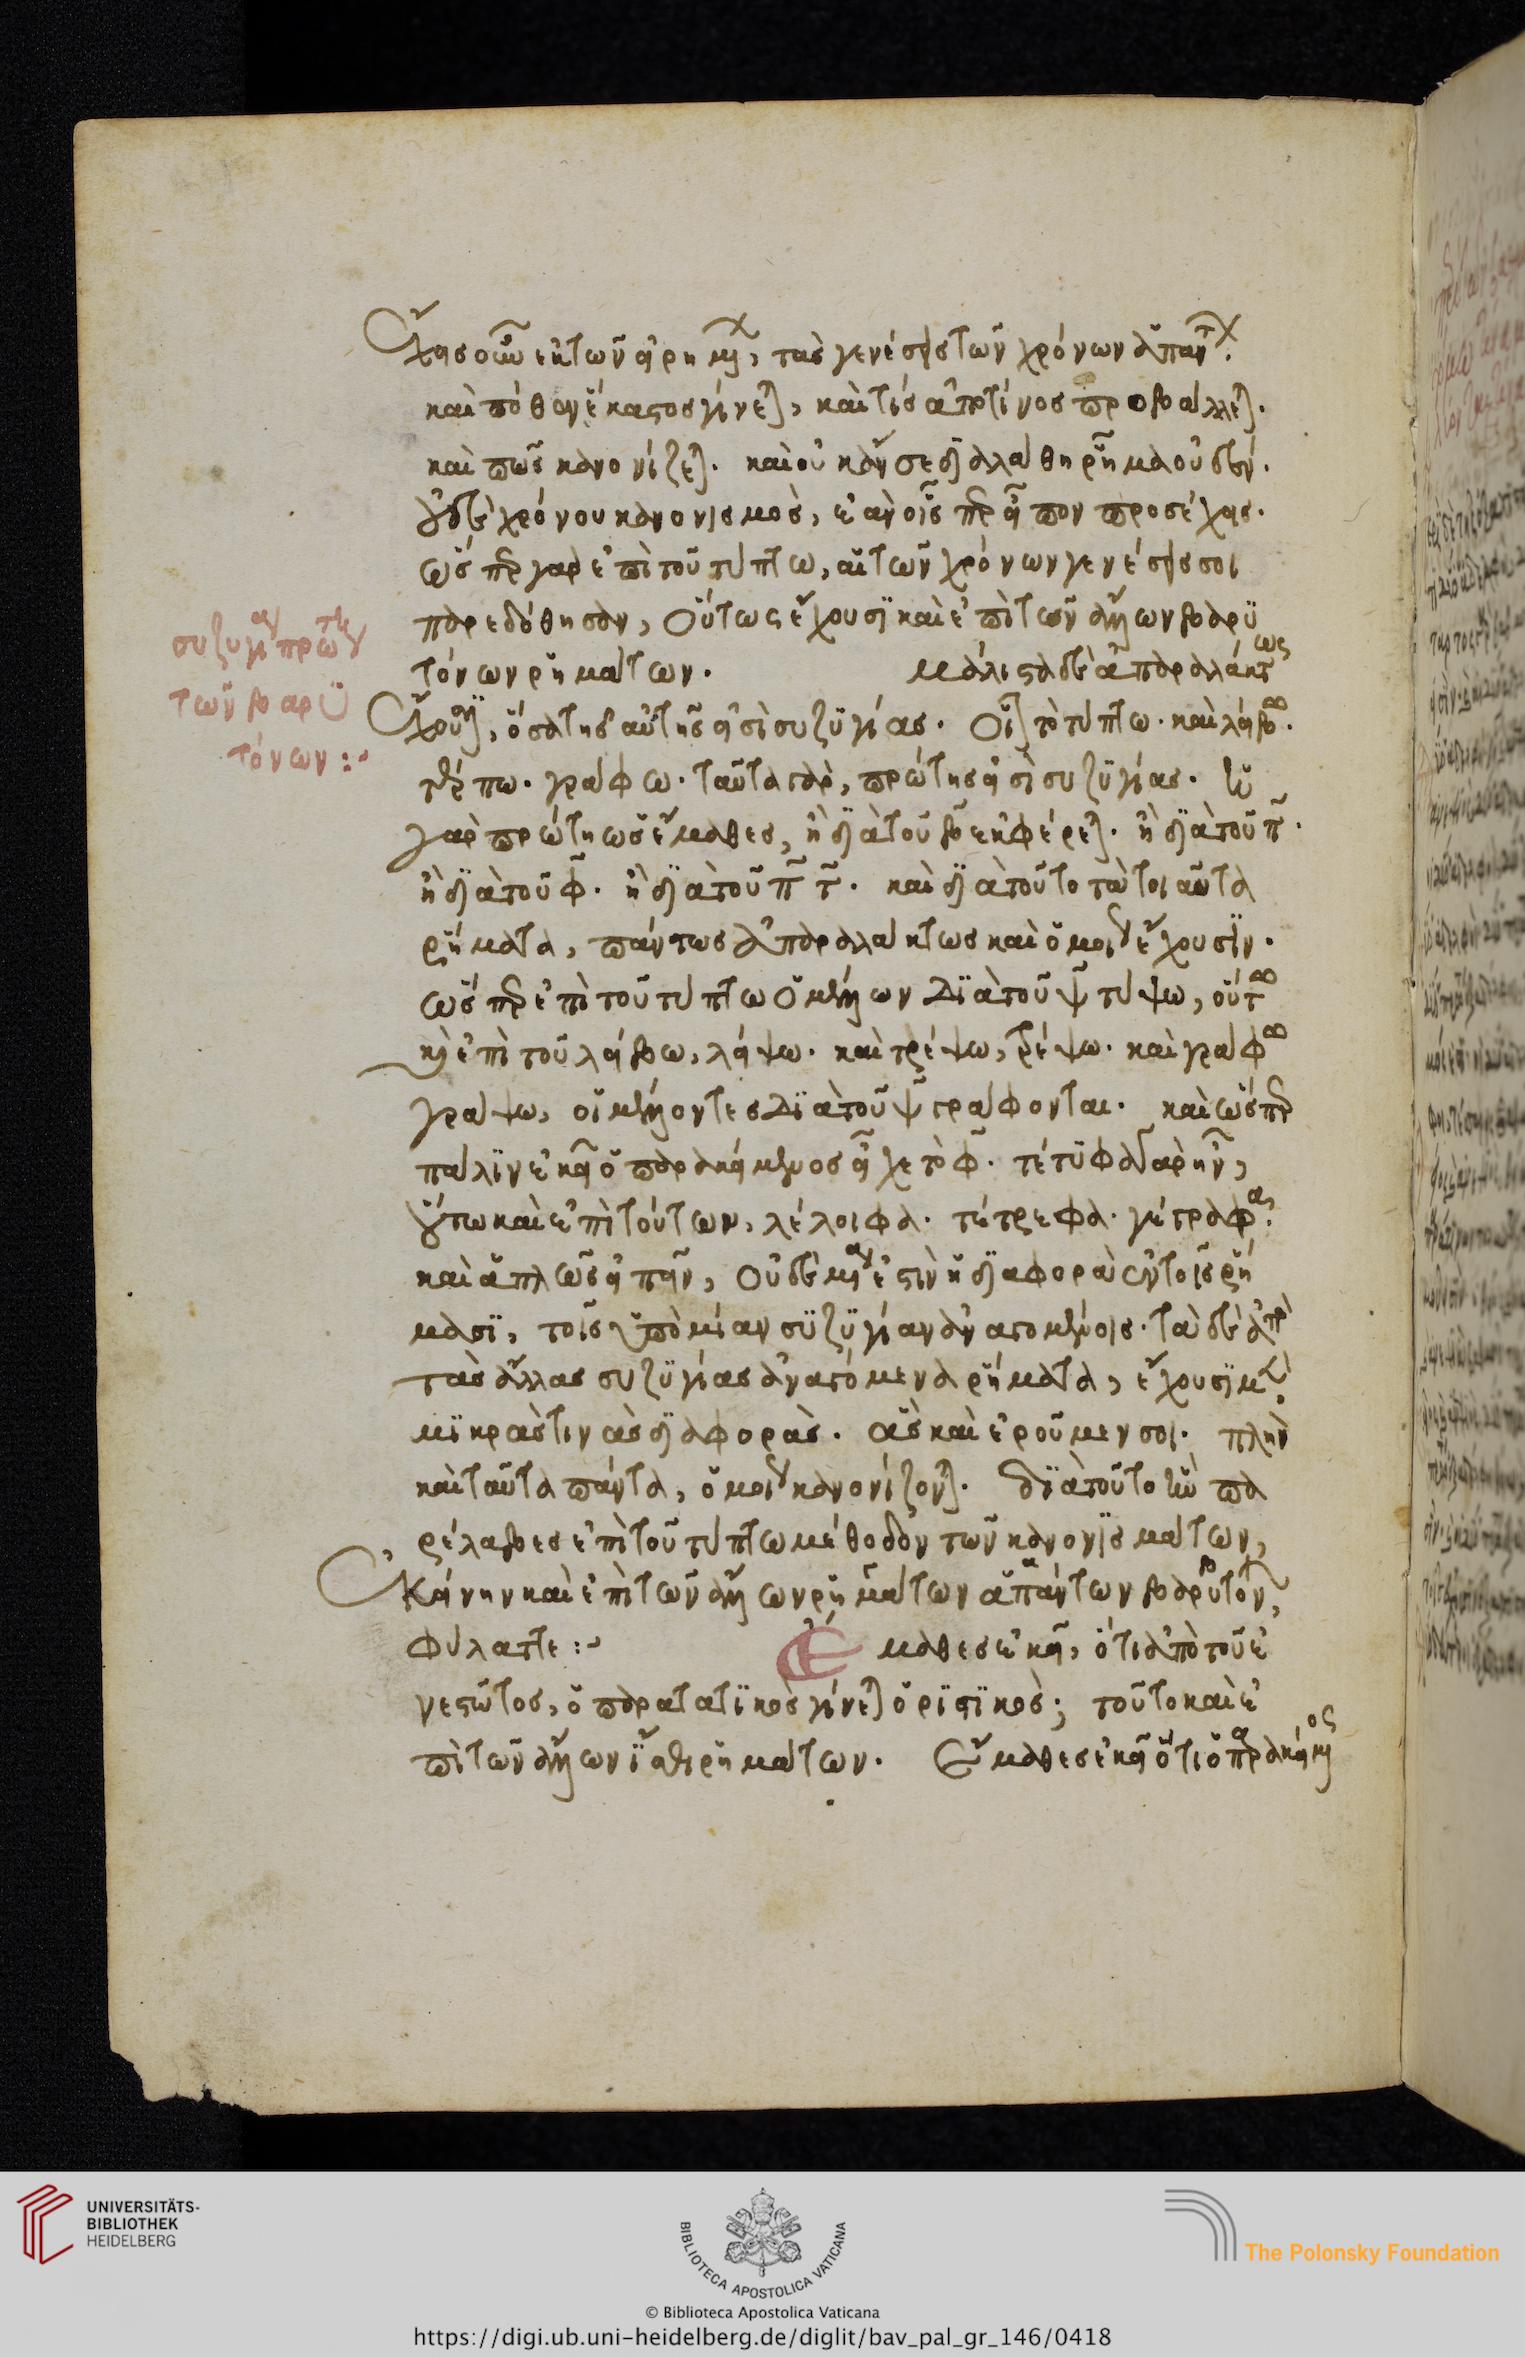 Ἔχεις οὖν ἐκ τῶν εἰρημένων, τὰς γενέσεις τῶν χρόνων ἁπάντων.
καὶ πόθεν ἕκαστος γίνεται, καὶ τίς ἀπό τίνος προβάλλεται.
καὶ πῶς κανονίζεται. καὶ οὐκ ἄν σε διαλάθη ῥῆμα οὐδέν.
οὐδὲ χρόνου κανονισμὸς, ἐὰν οἷσπερ εἶπον προσέχεις.
ὥσπερ γὰρ ἐπὶ τοῦ τύπτω, αἱ τῶν χρόνων γενέσεις σοι
παρεδόθησαν, Οὕτως ἔχουσϊ καὶ ἐπὶ τῶν ἄλλων βαρϋ
τόνων ῥημάτων. μάλιστα δὲ ἀπαραλάκτως
συζυγία πρώτη
τῶν βαρϋ
τόνων :~
Ἔχουσιν, ὅσα τῆς αὐτῆς εἰσὶ συζϋγίας. Οἷον τὸ τύπτω. καὶ λείβω.
τρέπω. γράφω. ταῦτα γὰρ, πρώτης εἰσὶ συζϋγίας. ἡ
γὰρ πρώτη ὡς ἔμαθες, ἢ διὰ τοῦ β ἐκφέρεται. ἢ διὰ τοῦ π.
ἢ διὰ τοῦ φ. ἢ διὰ τοῦ π τ. καὶ διὰ τοῦτο τὰ τοιαῦτα
ῥήματα, πάντως ἀπαραλάκτως καὶ ὁμοίως ἔχουσϊν.
ὥσπερ ἐπὶ τοῦ τύπτω ὁ μέλλων διὰ τοῦ ψ τύψω, οὕτω
καὶ ἐπὶ τοῦ λείβω, λείψω. καὶ τρέψω, τρέψω. καὶ γράφω
γράψω, οἱ μέλλοντες διὰ τοῦ ψ γράφονται. καὶ ὥσπερ
πάλϊν ἐκεῖ ὁ παρακείμενος εἶχε τὸ φ. τέτϋφα γὰρ ἦν,
οὕτω καὶ ἐπὶ τούτων, λέλοιφα. τέτρεφα. γέγραφα.
καὶ ἁπλῶς εἰπεῖν, οὐδὲ μία ἐστὶν ἡ διαφορὰ ἐν τοῖς ῥή
μασϊ, τοῖς ὑπὸ μίαν σϋζϋγίαν ἀναγομένοις. τὰ δὲ ὑπὸ
τὰς ἄλλας συζϋγίας ἀναγόμενα ῥήματα, ἔχουσϊ μὲν
μϊκράς τινας διαφορὰς. ἃς καὶ ἐροῦμεν σοι. πλὴν
καὶ ταῦτα πάντα, ὁμοίως κανονίζονται. διὰ τοῦτο ἣν πα
ρέλαβες ἐπὶ τοῦ τύπτω μέθοδον τῶν κανονϊσμάτων,
Ἐκείνην καὶ ἐπὶ τῶν ἄλλων ῥημάτων ἁπάντων βαρυτόνων,
φύλαττε :~ Ἔμαθες ἐκεῖ, ὅτι ἀπὸ τοῦ ἐ
νεστῶτος, ὁ παρατατϊκὸς γίνεται ὁρϊστϊκὸς; τοῦτο καὶ ἐ
πὶ τῶν ἄλλων ἴσθι ῥημάτων. Ἔμαθες ἐκεῖ ὅτι ὁ παρακείμενος
UNIVERSITÄTS-
BIBLIOTHEK
HEIDELBERG
BIBLIOTECA APOSTOLICA VATICANA
The Polonsky Foundation
© Biblioteca Apostolica Vaticana
https://digi.ub.uni-heidelberg.de/diglit/bav_pal_gr_146/0418